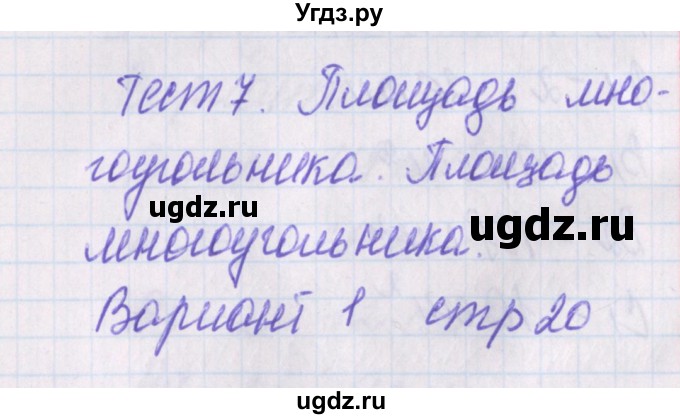 Угдз.ру
Тест 7. Площадь мно-
гоугольника. Площадь
ugdz.ru
ugdz.ru
многоугольника.
Вариант 1 стр 20
ugdz.ru